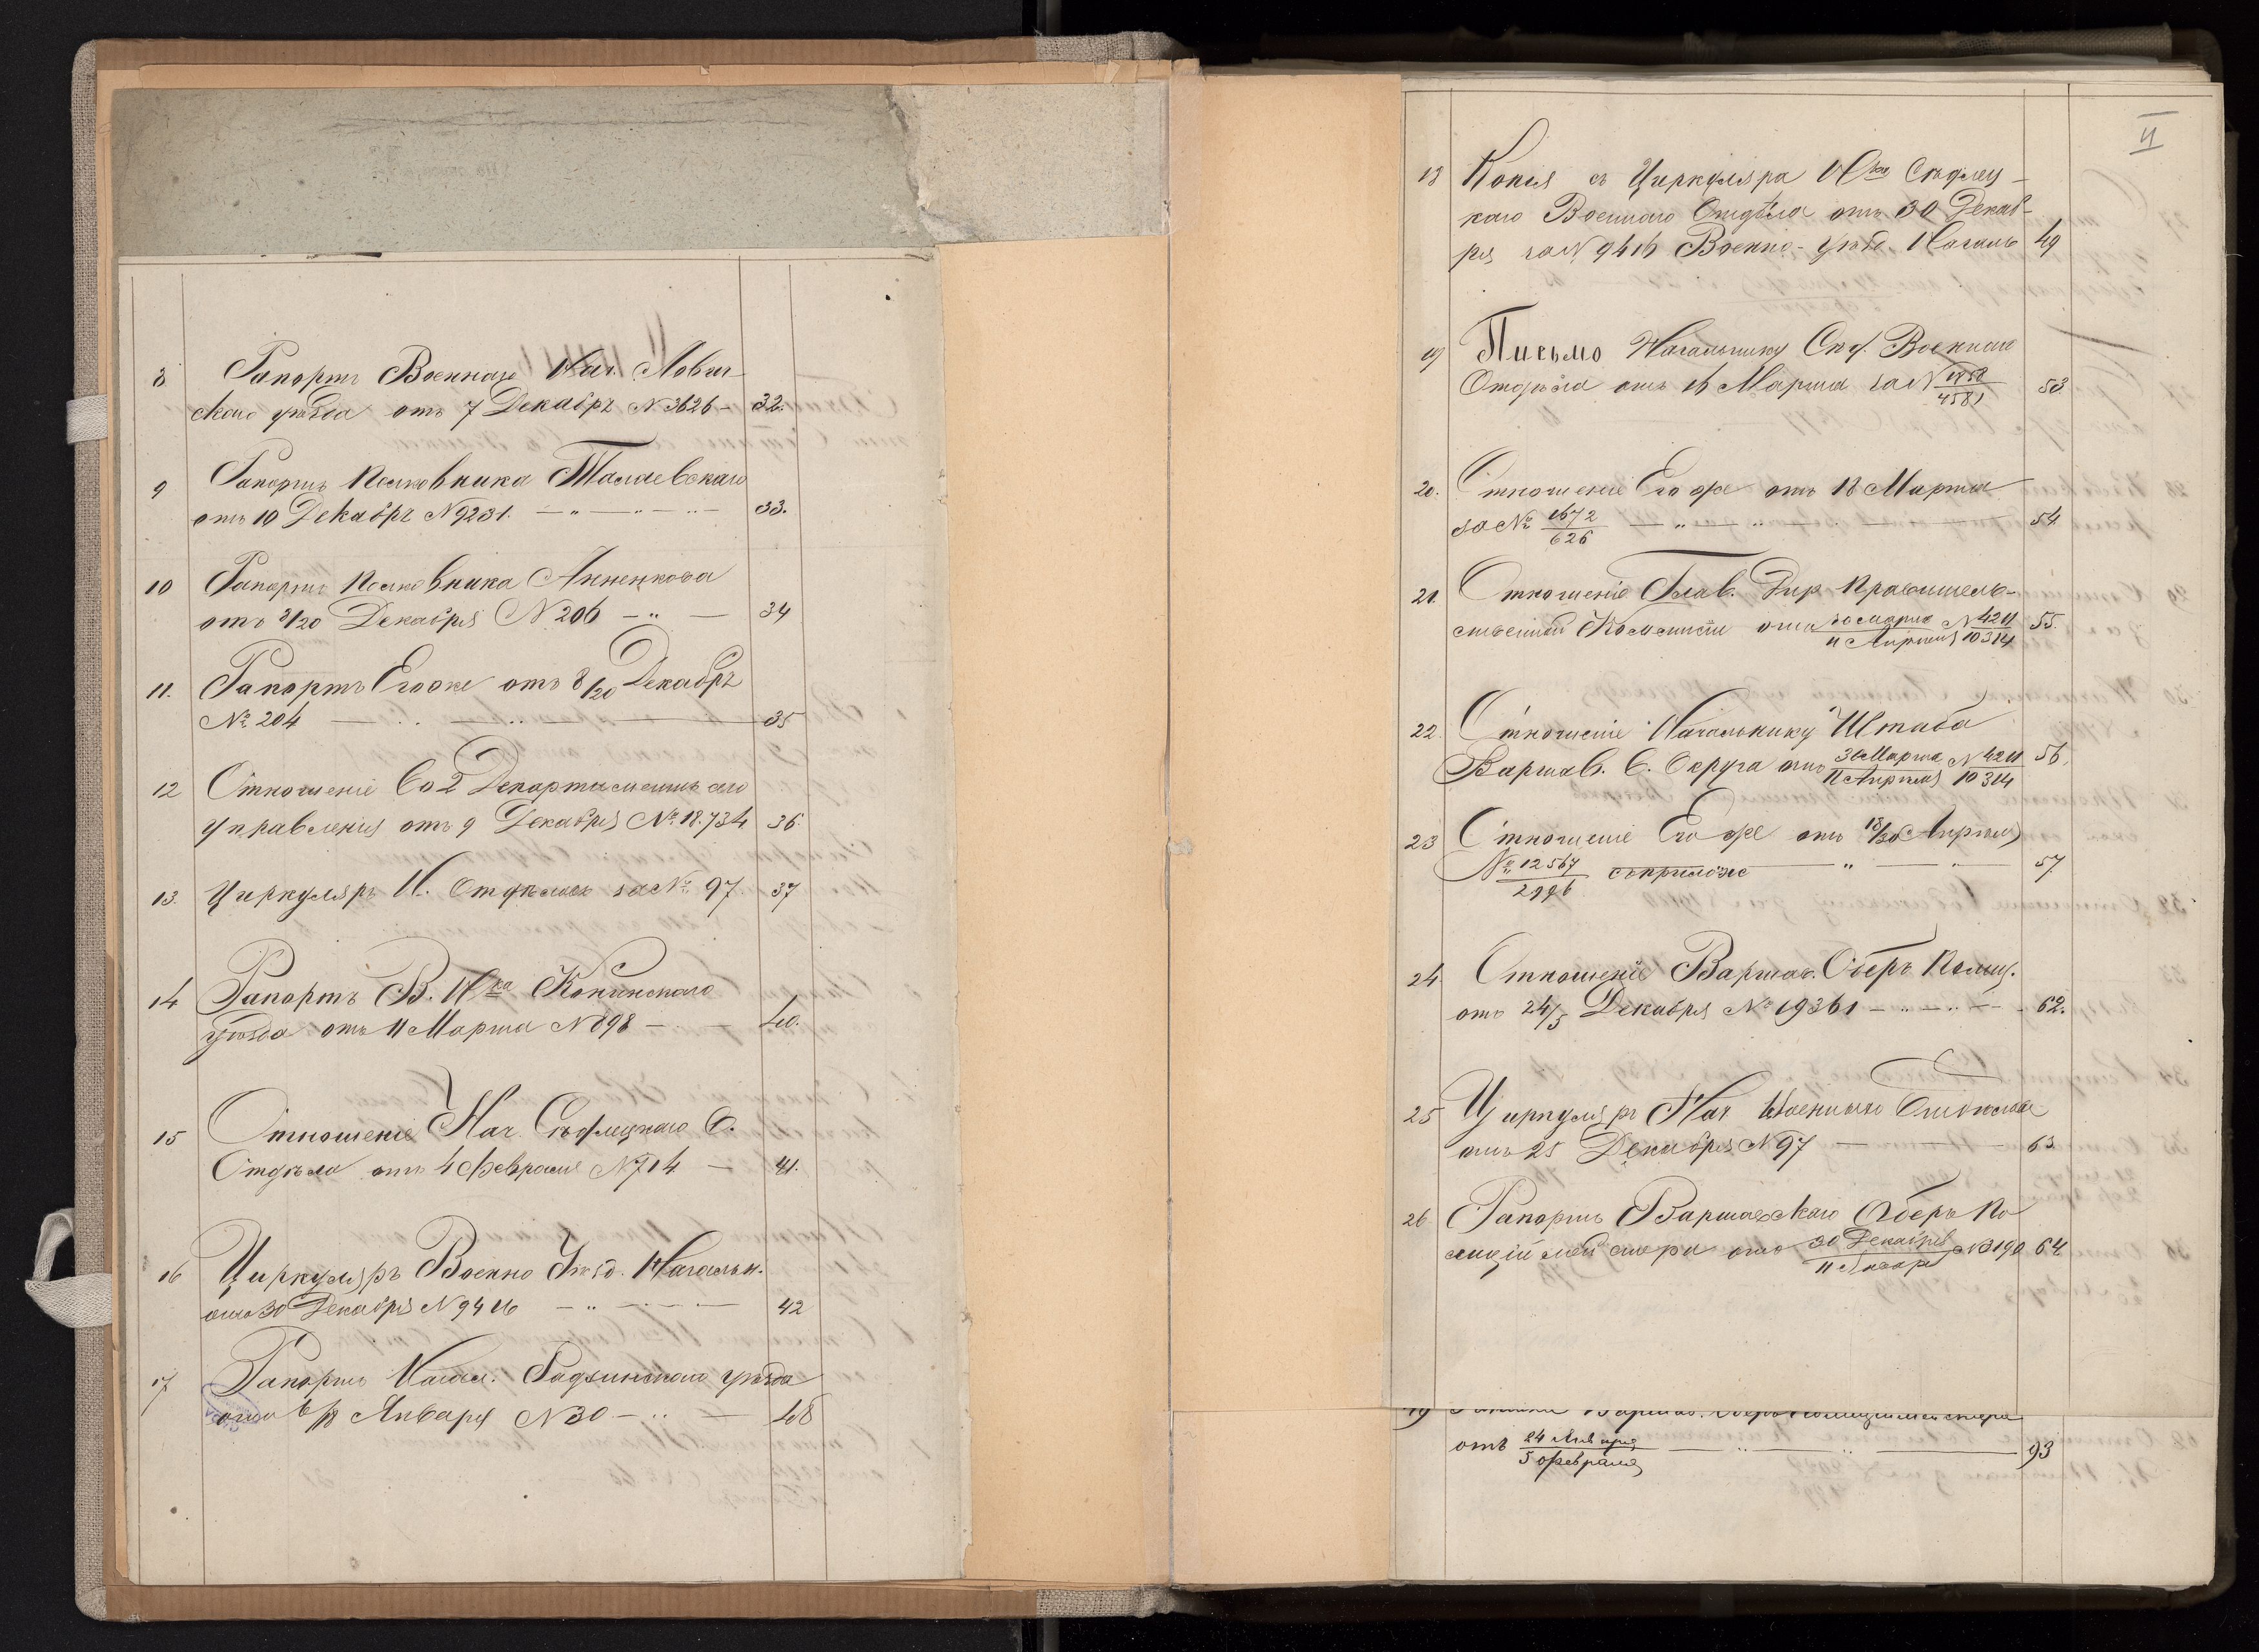 8 Рапортъ Военнаго Нач. Лович-
скаго уѣзда отъ 7 Декабрѣ № 3626 — 32.
9 Рапортъ Полковника
отъ 10 Декабрѣ № 9231. — „ — „ — 33.
10 Рапортъ Полковника Анненкова
отъ 8/20 Декабря № 206 — „ — 34
11. Рапортъ Его же отъ 8/20 Декабрѣ
№ 204 — „ — „ — 35
12 Отношеніе
Управленія отъ 9 Декабря № 18.734 36.
13. Циркуляръ Н. Отдѣловъ за № 97. 37
14 Рапортъ В. Нка Конинскаго
уѣзда отъ 11 Марта № 898 — — 40.
15 Отношеніе Нач. Сѣдлецкаго В.
Отдѣла отъ 4 Февраля № 714 — 41.
16 Циркуляръ Военно Уѣзд. Начальн.
отъ 30 Декабря № 9416 — „ — 42
17 Рапортъ Радзинскаго уѣзда
отъ 6/18 Января № 30 — „ — 48
II
18 Копія съ Циркуляра Нка Сѣдлец-
каго Военнаго Отдѣла отъ 30 Декаб-
ря за № 9416 Военно-Уѣзд. Началь 49
19 Письмо Начальнику Сѣд. Военнаго
Отдѣла отъ 16 Марта за № 1758/4581 53
20. Отношеніе Его же отъ 18 Марта
за № 1672/626 — „ — „ — 54
21. Отношеніе Глав. Дир Правитель-
ственной Коммисіи отъ 30 Марта/11 Апрѣля № 4211/10314 55.
22. Отношеніе Начальнику Штаба
Варшав. В. Округа отъ 30 Марта/11 Апрѣля № 4211/10314 56.
23 Отношеніе Его же отъ 18/30 Апрѣля
№ 12567/2996 съ прилож — „ — „ 57
24. Отношеніе Варшав. Оберъ Полиц.
отъ 24/5 Декабря № 19361 — „ — „ — 62.
25 Циркуляръ Нач Военнаго Отдѣла
отъ 25 Декабря № 97 — — 63
26 Рапортъ Варшавскаго Оберъ По
лиціймейстера отъ 30 Декабря/11 Января № 3190 64
Варшав. Оберъ Полиціймейстера
отъ 24 Января/5 Февраля — „ — „ — 93